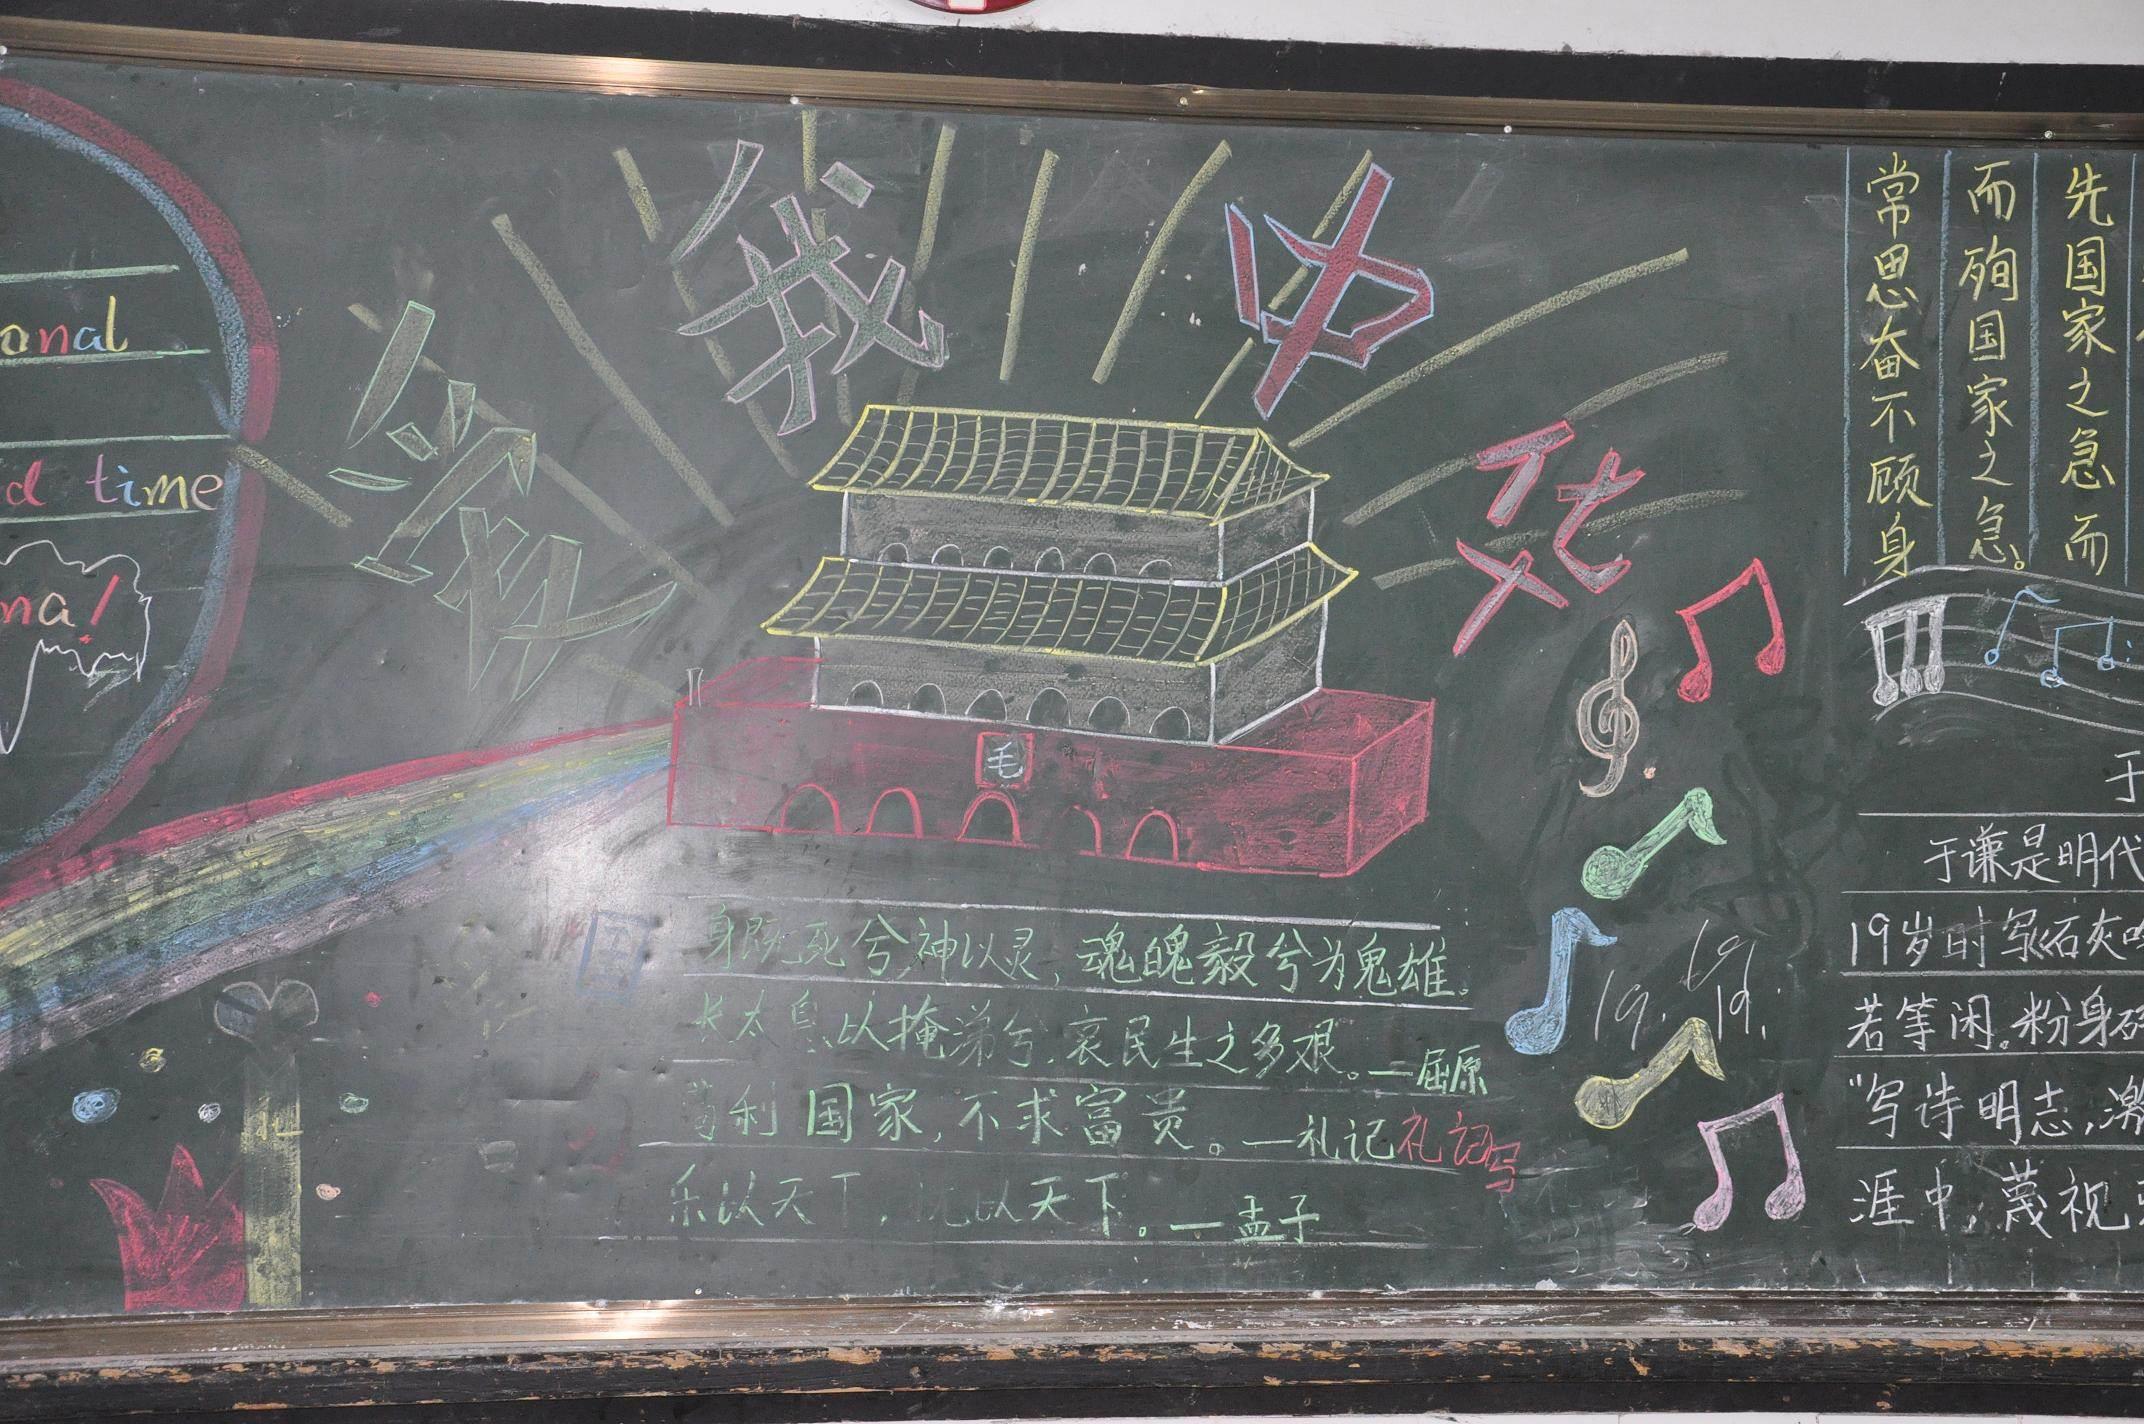 onal
d time
na!
爱我中华
毛
身既死兮神以灵，魂魄毅兮为鬼雄。
长太息以掩涕兮，哀民生之多艰。—屈原
苟利国家，不求富贵。—礼记礼记写
乐以天下，忧以天下。—孟子
19.
19.
19.
先国家之急而
而殉国家之急。
常思奋不顾身
于
于谦是明代
19岁时写《石灰吟
若等闲。粉身碎
"写诗明志，激
涯中，蔑视